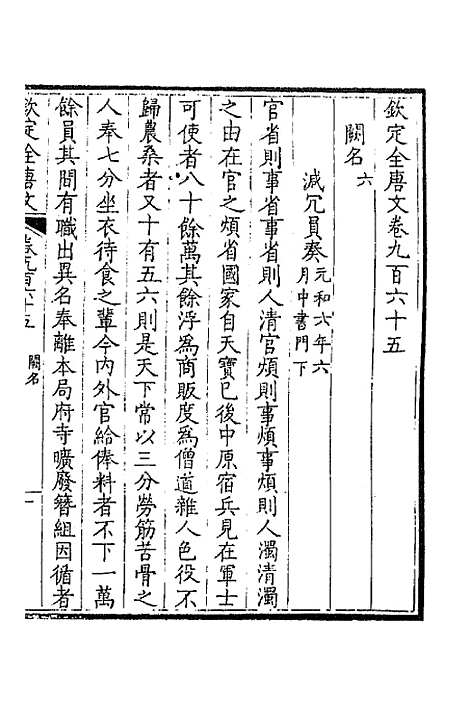 欽定全唐文卷九百六十五
闕名六
減冗員奏元和六年六月中書門下
官省則事省事省則人清官煩則事煩事煩則人濁清濁
之由在官之煩省國家自天寶已後中原宿兵見在軍士
可使者八十餘萬其餘浮為商販度為僧道雜入色役不
歸農桑者又十有五六則是天下常以三分勞筋苦骨之
人奉七分坐衣待食之輩今內外官給俸料者不下一萬
餘員其間有職出異名奉離本局府寺曠廢簪組因循者
欽定全唐文
卷九百六十五
闕名
一